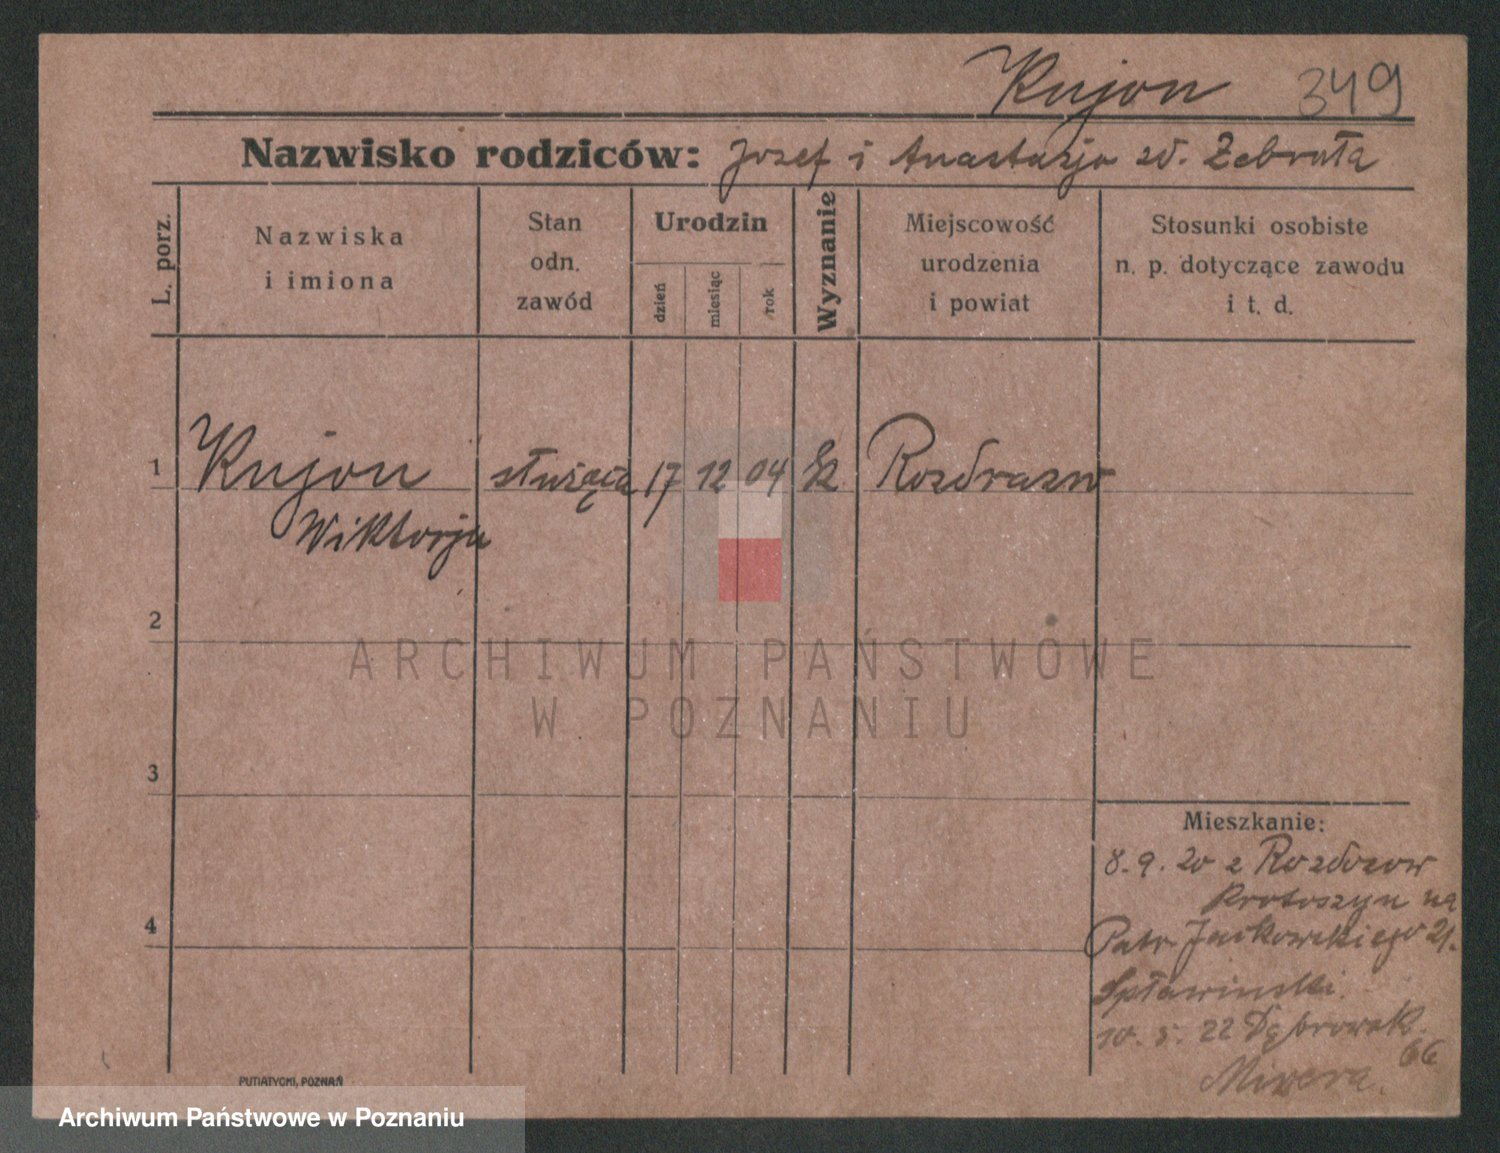 Kujon 349
Nazwisko rodziców: Jozef i Anastazja zd. Zebrała
L. porz.
Nazwiska
i imiona
Stan
odn.
zawód
Urodzin
dzień
miesiąc
rok
Wyznanie
Miejscowość
urodzenia
i powiat
Stosunki osobiste
n. p. dotyczące zawodu
i t. d.
1 Kujon służąca 17 12 04 Rozdrazw
Wiktorja
2
ARCHIWUM PAŃSTWOWE
W POZNANIU
3
Mieszkanie:
8. 9. 20 z
Krotoszyn na
Patr Jackowskiego 21.
4
Spławinski
10. 5. 22 Dąbrowsk.
66
Mizera.
PUTIATYCKI, POZNAŃ
Archiwum Państwowe w Poznaniu